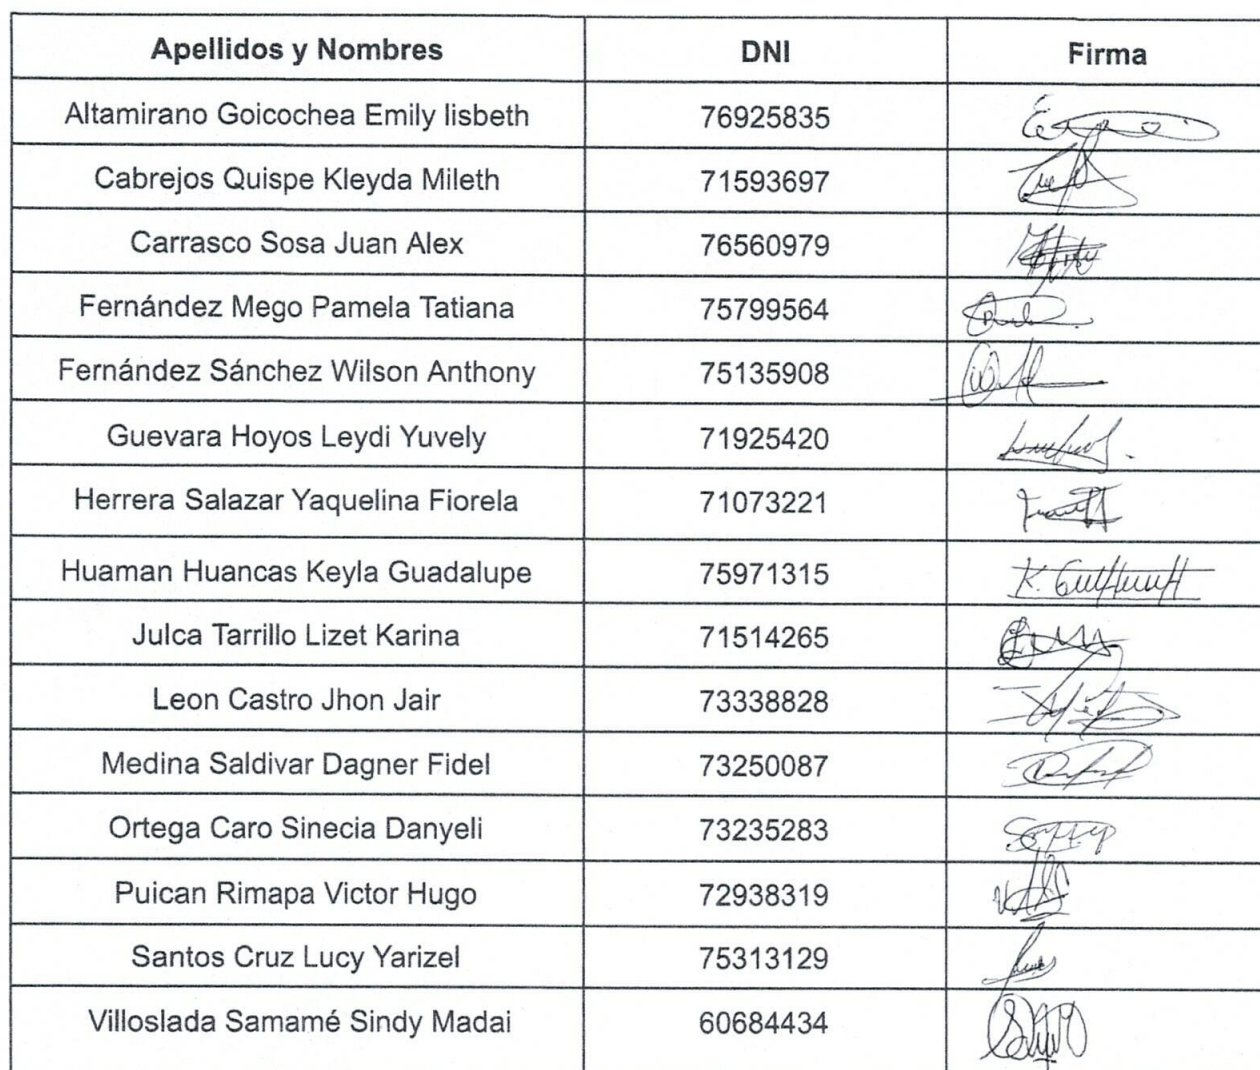 Apellidos y Nombres DNI Firma
Altamirano Goicochea Emily lisbeth 76925835
Cabrejos Quispe Kleyda Mileth 71593697
Carrasco Sosa Juan Alex 76560979
Fernández Mego Pamela Tatiana 75799564
Fernández Sánchez Wilson Anthony 75135908
Guevara Hoyos Leydi Yuvely 71925420
Herrera Salazar Yaquelina Fiorela 71073221
Huaman Huancas Keyla Guadalupe 75971315
Julca Tarrillo Lizet Karina 71514265
Leon Castro Jhon Jair 73338828
Medina Saldivar Dagner Fidel 73250087
Ortega Caro Sinecia Danyeli 73235283
Puican Rimapa Victor Hugo 72938319
Santos Cruz Lucy Yarizel 75313129
Villoslada Samamé Sindy Madai 60684434